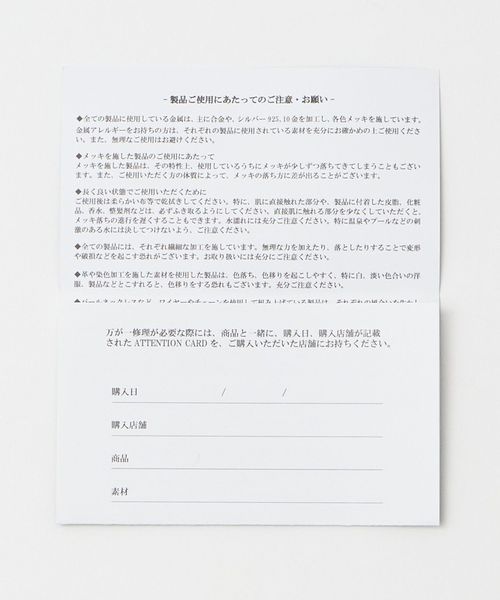 - 製品ご使用にあたってのご注意・お願い -
◆全ての製品に使用している金属は、主に合金や、シルバー925, 10金を加工し、各色メッキを施しています。
金属アレルギーをお持ちの方は、それぞれの製品に使用されている素材を充分にお確かめの上ご使用くださ
い。また、無理なご使用はお避けください。
◆メッキを施した製品のご使用にあたって
メッキを施した製品は、その特性上、使用しているうちにメッキが少しずつ落ちてきてしまうこともござい
ます。また、ご使用いただく方の体質によって、メッキの落ち方に差が出ることがございます。
◆長く良い状態でご使用いただくために
ご使用後は柔らかい布等で乾拭きしてください。特に、肌に直接触れた部分や、製品に付着した皮脂、化粧
品、香水、整髪剤などは、必ずふき取るようにしてください。直接肌に触れる部分を少なくしていただくと、
メッキ落ちの進行を遅くすることもできます。水濡れには充分ご注意ください。特に温泉やプールなどの刺
激のある水には決してつけないよう、ご注意ください。
◆全ての製品には、それぞれ繊細な加工を施しています。無理な力を加えたり、落としたりすることで変形
や破損などを起こす恐れがございます。お取り扱いには充分にご注意ください。
◆革や染色加工を施した素材を使用した製品は、色落ち、色移りを起こしやすく、特に白、淡い色合いの洋
服、製品などとこすれると、色移りをする恐れもございます。充分ご注意ください。
◆パールネックレスなど、ワイヤーやチェーンを使用して組み上げている製品は、それぞれの風合いを生かし
万が一修理が必要な際には、商品と一緒に、購入日、購入店舗が記載
された ATTENTION CARD を、ご購入いただいた店舗にお持ちください。
購入日 / /
購入店舗
商品
素材